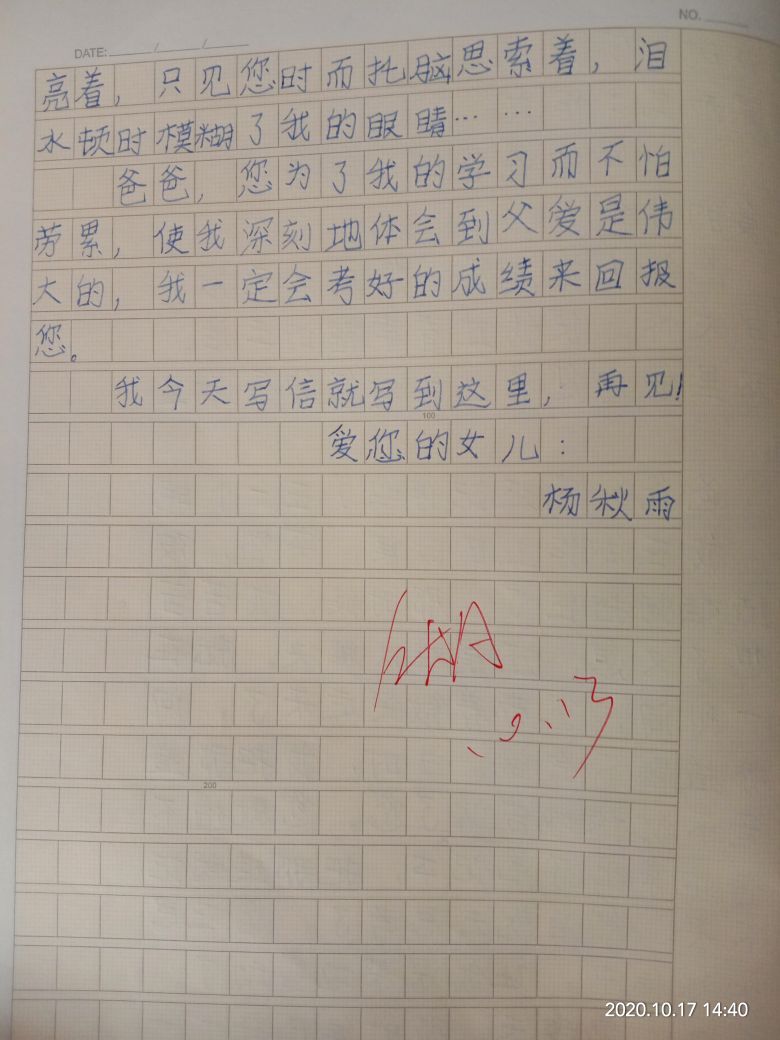 NO.
DATE: / /
亮着，只见您时而托脑思索着，泪
水顿时模糊了我的眼睛……
爸爸，您为了我的学习而不怕
劳累，使我深刻地体会到父爱是伟
大的，我一定会考好的成绩来回报
您。
我今天写信就写到这里，再见！
100
爱您的女儿：
杨秋雨
200
2020.10.17 14:40